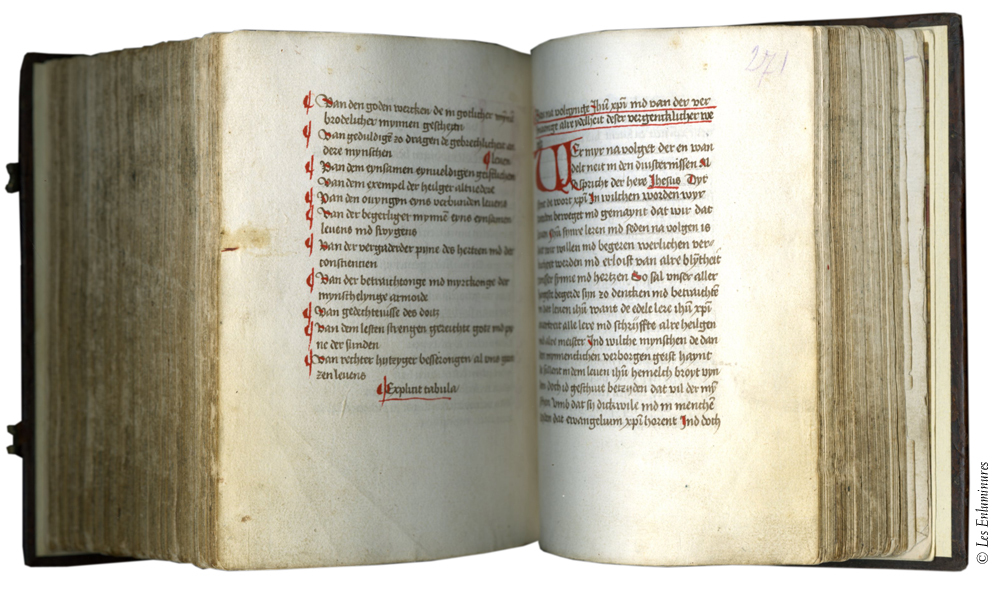 Van den goden wercken de in gotlicher mynnē
brodelicher mynnen geschegen
Van geduldigē zo dragen de gebrechlicheit an
dere mynschen
leuen
Van dem eynsamen eynueldigen geistlichem
Van dem exempel der heilger altuedere
Van den ouyngyn eyns verbunden leuens
Van der begerliger mynnē eyns eynsamen
leuens ind swygens
Van der vergaderder pyne des hertzen ind der
consciencien
Van der betrachtonge ind myrckonge der
mynschelynge armoide
Van gedechtnisse des doitz
Van dem lesten strengen gerichte gotz ind py
ne der sunden
Van rechter huteyger besserongen al vnss gan
zen leuens
Explicit tabula
271
na volgynge Ihū xp̄i ind van der ver
alre ydelheit deser vergencklicher we
Wer myr na volget der en wan
delt neit in den duusternissen Al
spricht der here Ihesus Dyt
synt de wort xp̄i In wilchen worden wyr
werden beweget ind gemaynt dat wir dat
leuen Ihū syne leren ind seden na volgen is
dat wir willen ind begeren werlichen ver
luchtet werden ind erloist van alre blytheit
vnsser synne ind hertzen So sal vnser aller
begerde syn zo dencken ind betrachtē
in dem leuen ihū want de edele lere ihū xp̄i
alle lere ind schrijffte alre heilgen
ind alre meister Ind wilche mynschen de dan
den ynnencklichen verborgen geist haynt
in dem leuen ihū hemelch broyt vyn
den doch id geschuet bezyden dat vil der mȳ
schen vmb dat sij dickwile ind in menchē
dat ewangelium xp̄i horent Ind doch
© Les Enluminures